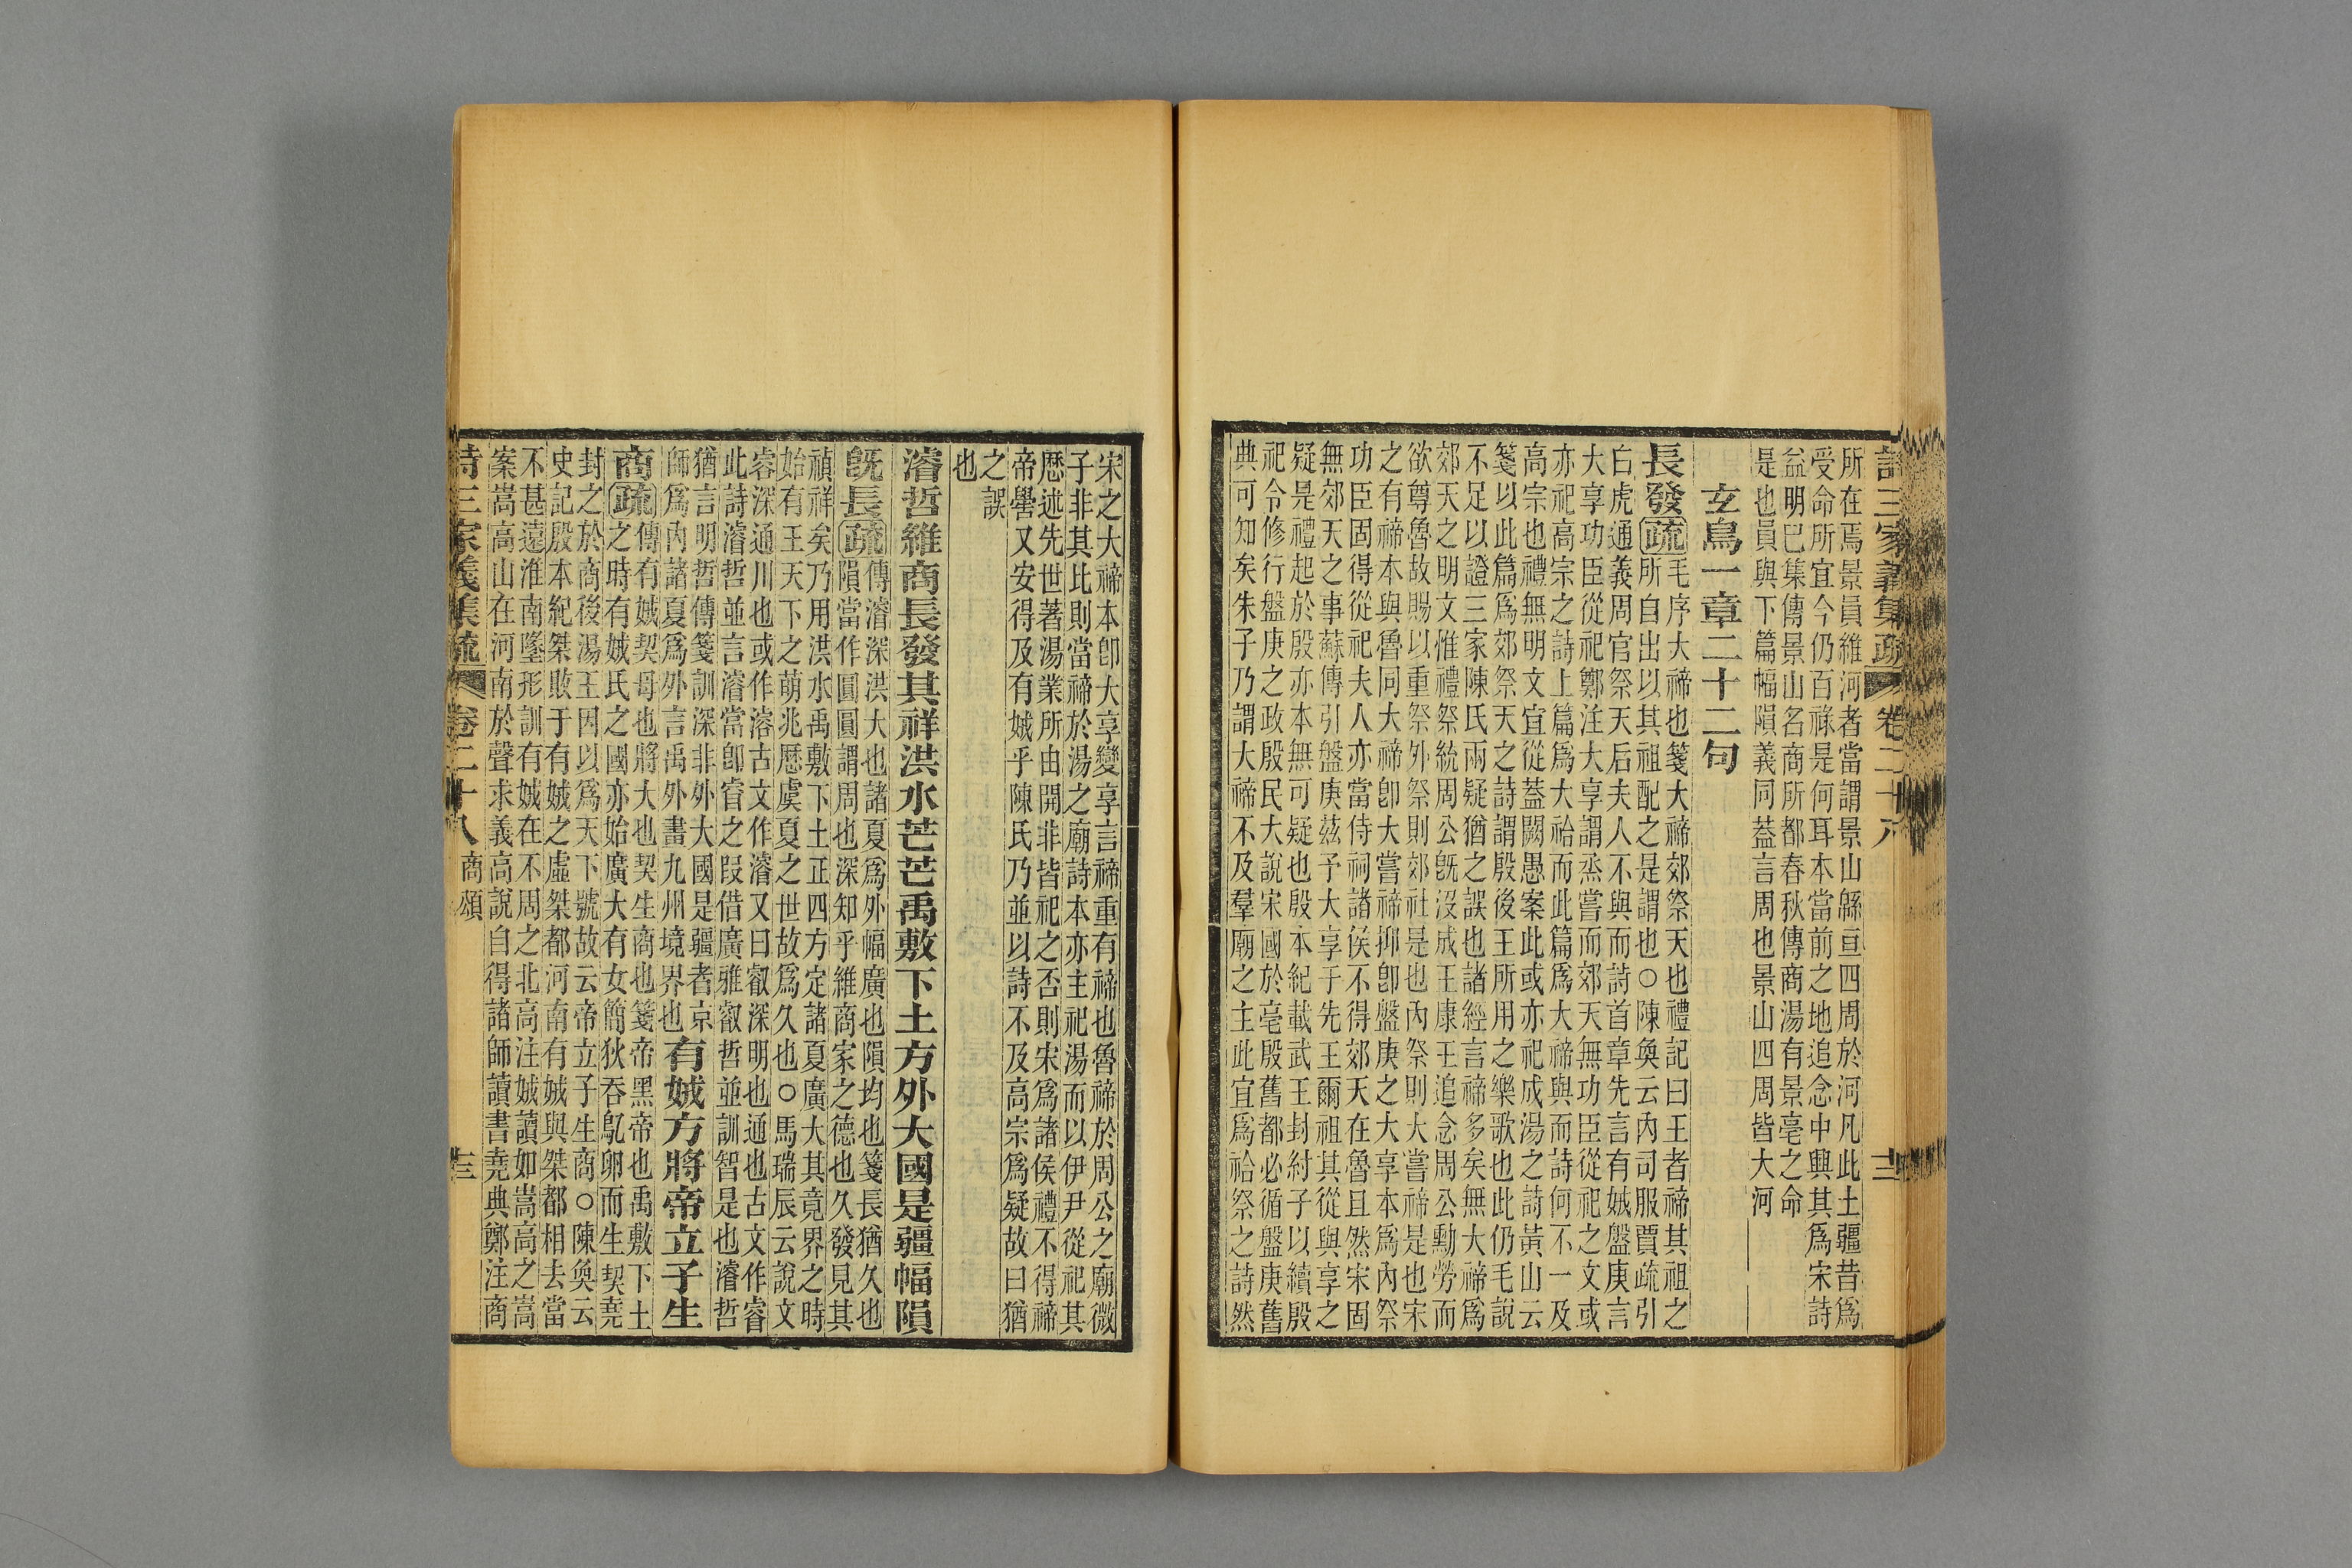 詩三家義集疏 卷二十八 十二
所在焉景員維河者當謂景山緜亘四周於河凡此土疆昔爲
受命所宜今仍百祿是何耳本當前之地追念中興其爲宋詩
益明巳集傳景山名商所都春秋傳商湯有景亳之命
是也員與下篇幅隕義同葢言周也景山四周皆大河
玄鳥一章二十二句
長發疏毛序大禘也箋大禘郊祭天也禮記曰王者禘其祖之
所自出以其祖配之是謂也○陳奐云內司服賈疏引
白虎通義周官祭天后夫人不與而詩首章先言有娀盤庚言
大享功臣從祀鄭注大享謂烝嘗而郊天無功臣從祀之文或
亦祀高宗之詩上篇爲大祫而此篇爲大禘與而詩何不一及
高宗也禮無明文宜從葢闕愚案此或亦祀成湯之詩黃山云
箋以此篇爲郊祭天之詩謂殷後王所用之樂歌也此仍毛說
不足以證三家陳氏兩疑猶之誤也諸經言禘多矣無大禘爲
郊天之明文惟禮祭統周公旣沒成王康王追念周公勳勞而
欲尊魯故賜以重祭外祭則郊社是也內祭則大嘗禘是也宋
之有禘本與魯同大禘卽大嘗禘抑卽盤庚之大享本爲內祭
功臣固得從祀夫人亦當侍祠諸侯不得郊天在魯且然宋固
無郊天之事蘇傳引盤庚茲予大享于先王爾祖其從與享之
疑是禮起於殷亦本無可疑也殷本紀載武王封紂子以續殷
祀令修行盤庚之政殷民大說宋國於亳殷舊都必循盤庚舊
典可知矣朱子乃謂大禘不及羣廟之主此宜爲祫祭之詩然
宋之大禘本卽大享變享言禘重有禘也魯禘於周公之廟微
子非其比則當禘於湯之廟詩本亦主祀湯而以伊尹從祀其
歷述先世著湯業所由開非皆祀之否則宋爲諸侯禮不得禘
帝嚳又安得及有娀乎陳氏乃並以詩不及高宗爲疑故曰猶
之誤
也
濬哲維商長發其祥洪水芒芒禹敷下土方外大國是疆幅隕
旣長疏傳濬深洪大也諸夏爲外幅廣也隕均也箋長猶久也
隕當作圓圓謂周也深知乎維商家之德也久發見其
禎祥矣乃用洪水禹敷下土正四方定諸夏廣大其竟界之時
始有王天下之萌兆歷虞夏之世故爲久也○馬瑞辰云說文
睿深通川也或作濬古文作濬又曰叡深明也通也古文作睿
此詩濬哲並言濬當卽睿之叚借廣雅叡哲並訓智是也濬哲
猶言明哲傳箋訓深非外大國是疆者京
師爲內諸夏爲外言禹外畫九州境界也有娀方將帝立子生
商疏傳有娀契母也將大也契生商也箋帝黑帝也禹敷下土
之時有娀氏之國亦始廣大有女簡狄吞鳦卵而生契堯
封之於商後湯王因以爲天下號故云帝立子生商○陳奐云
史記殷本紀桀敗于有娀之虛桀都河南有娀與桀都相去當
不甚遠淮南墬形訓有娀在不周之北高注娀讀如嵩高之嵩
案嵩高山在河南於聲求義高說自得諸師讀書堯典鄭注商
詩三家義集疏 卷二十八 商頌 十三